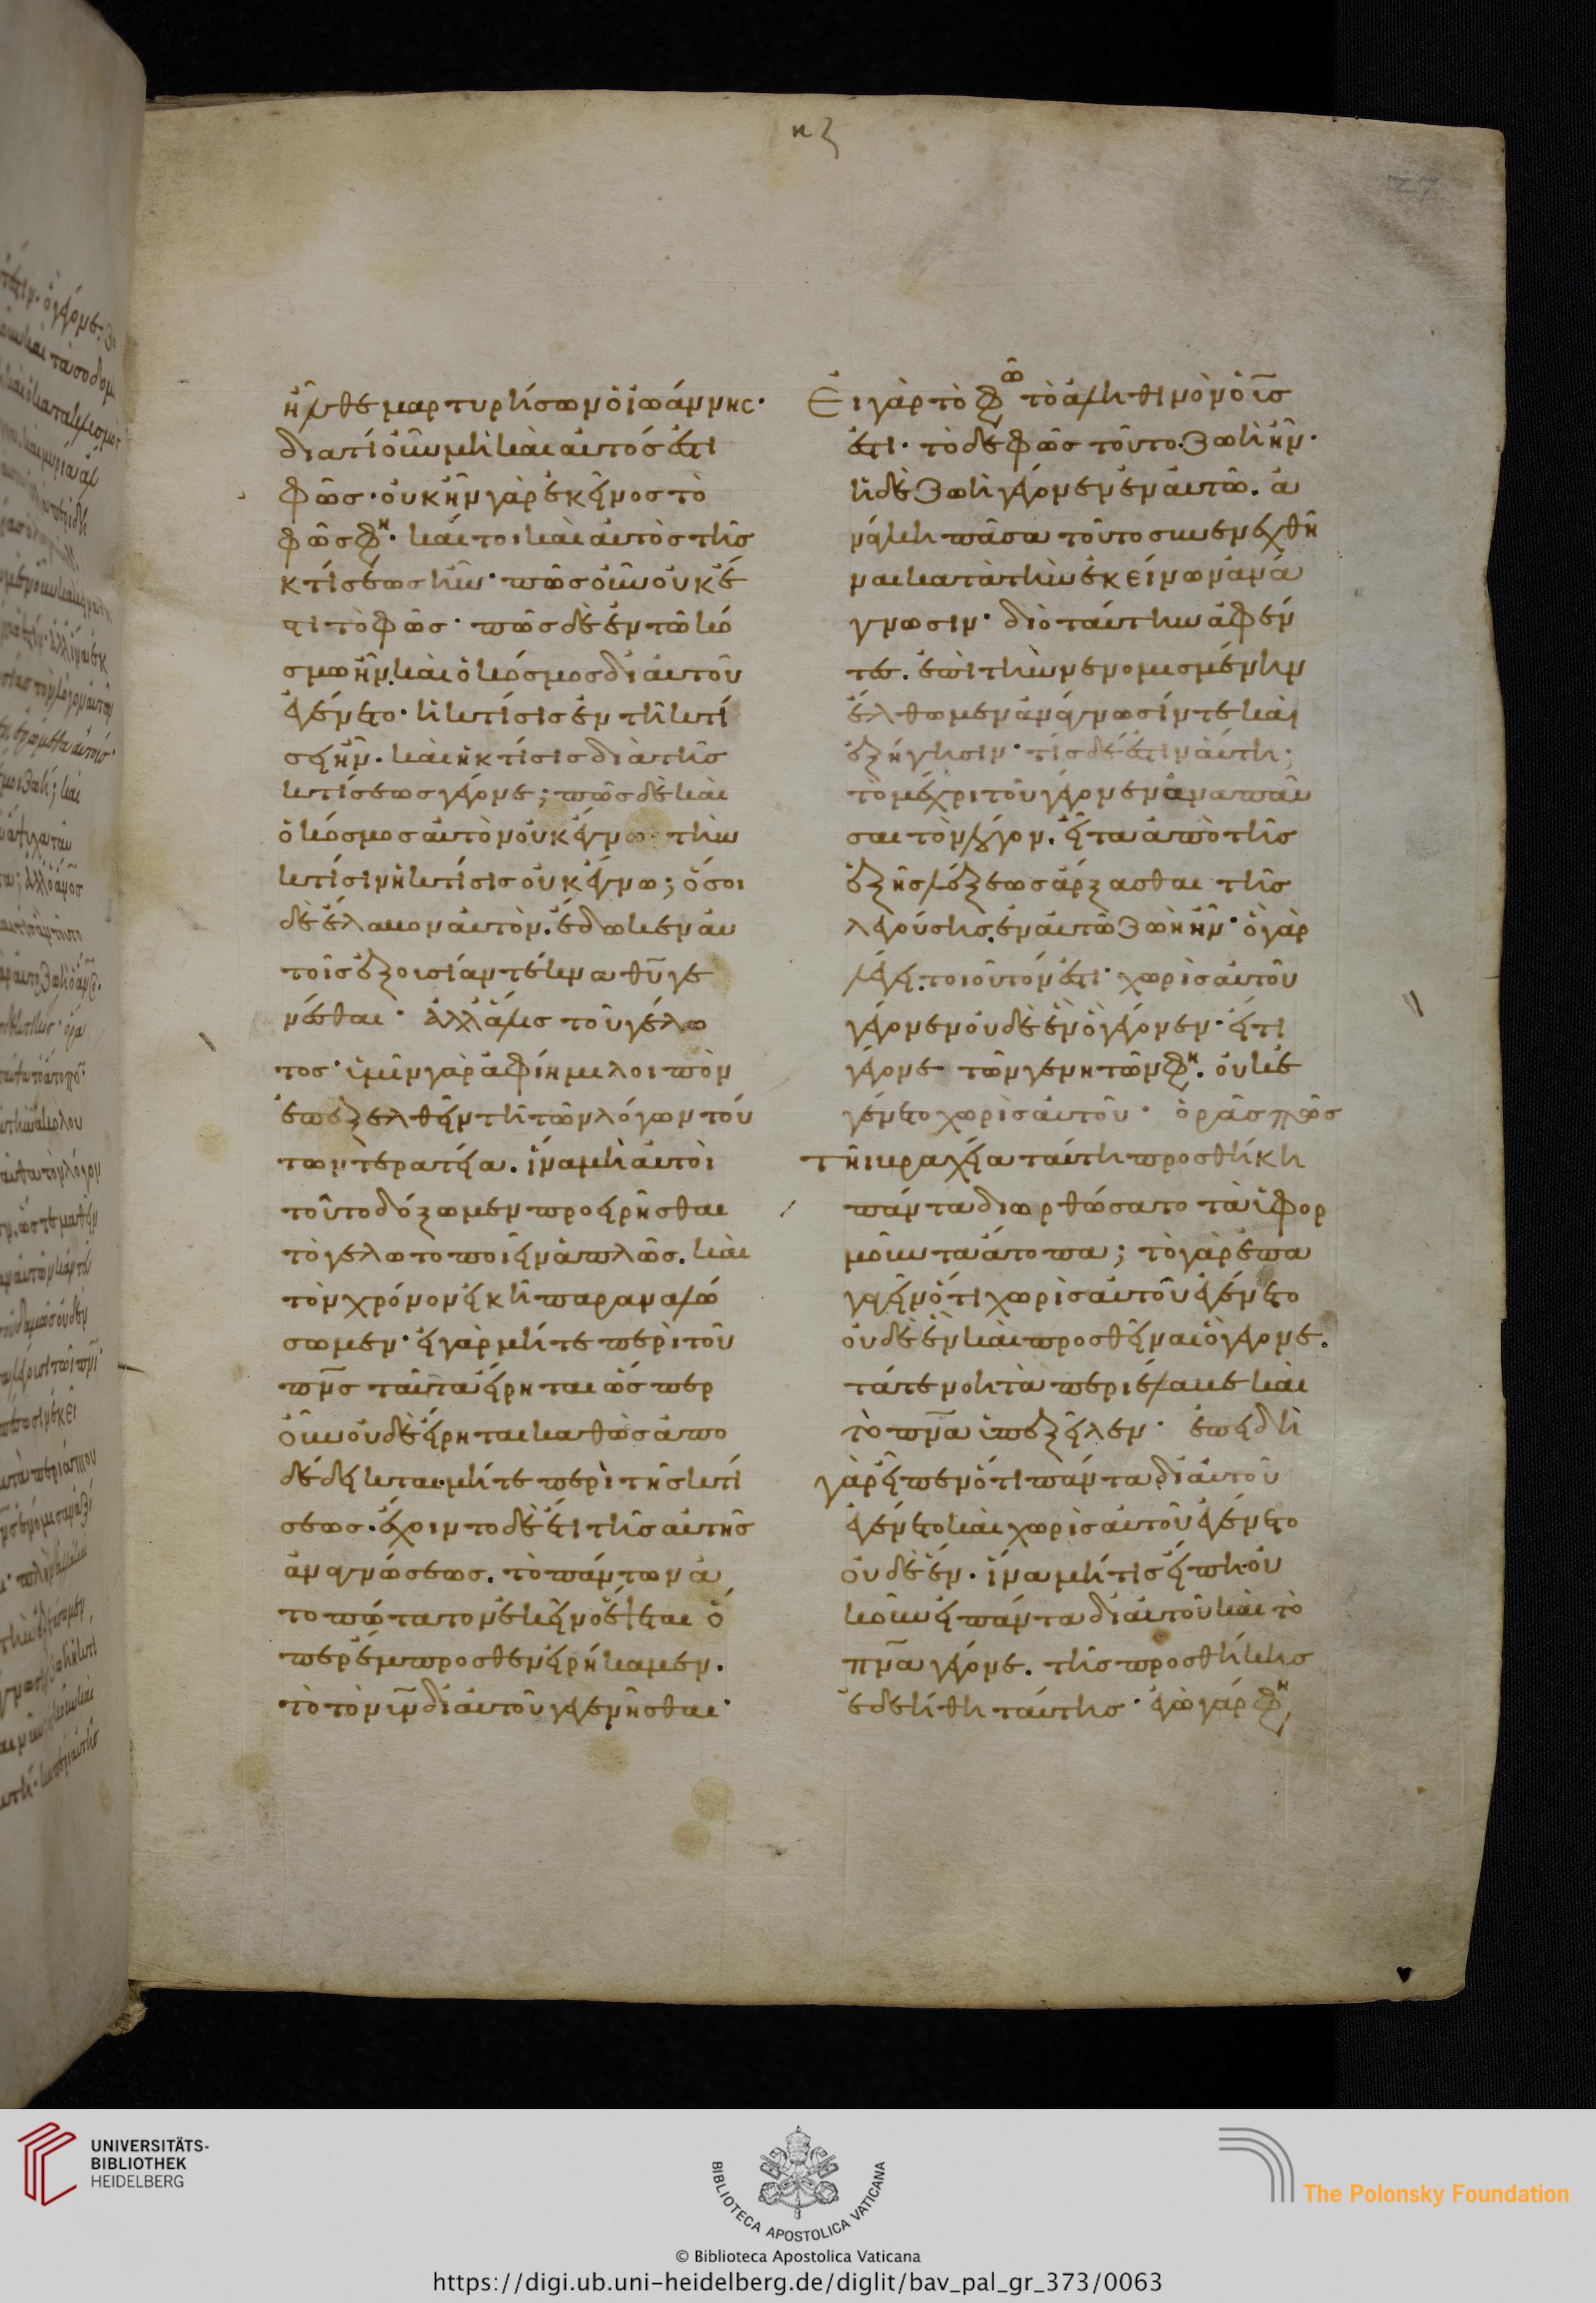 κζ
27
ἦλθε μαρτυρήσων ὁ ἰωάννης·
διατί οὖν μὴ καὶ αὐτός ἐστι
φῶς· οὐκ ἦν γὰρ ἐκεῖνος τὸ
φῶς φη· καίτοι καὶ αὐτὸς τῆς
κτίσεως ἦν· πῶς οὖν οὐκ ἔ
στι τὸ φῶς· πῶς δὲ ἐν τῶ κό
σμω ἦν. καὶ ὁ κόσμος δι' αὐτοῦ
ἐγένετο· ἡ κτίσις ἐν τῆ κτί
σει ἦν. καὶ ἡ κτίσις διὰ τῆς
κτίσεως γέγονε; πῶς δὲ καὶ
ὁ κόσμος αὐτὸν οὐκ ἔγνω· τὴν
κτίσιν ἡ κτίσις οὐκ ἔγνω; ὅσοι
δὲ ἔλαβον αὐτὸν. ἔδωκεν αὐ
τοῖς ἐξουσίαν τέκνα θ̅υ̅ γε
νέσθαι· ἀλλ' ἅλις τοῦ γέλω
τος· ὑμῖν γὰρ ἀφίημι λοιπὸν
ἐπεξελθεῖν τῆ τῶν λόγων τού
των τερατεία. ἵνα μὴ αὐτοὶ
τοῦτο δόξωμεν προειρῆσθαι
τὸ γελωτοποιεῖν ἁπλῶς. καὶ
τὸν χρόνον εἰκῆ παραναλώ
σωμεν· εἰ γὰρ μήτε περὶ τοῦ
π̅ν̅ς̅ ταῦτα εἴρηται ὥσπερ
οὖν οὐδὲ εἴρηται καθὼς ἀπο
δέδεικται. μήτε περὶ τῆς κτί
σεως. ἔχοιντο δὲ ἔτι τῆς αὐτῆς
ἀναγνώσεως. τὸ πάντων ἀ
τοπώτατον ἐκεῖνο ἕψεται ὅ
περ ἔμπροσθεν εἰρήκαμεν.
τὸ τὸν υ̅ν̅ δι' αὐτοῦ γεγενῆσθαι·
Εἰ γὰρ τὸ φῶ τὸ ἀληθινὸν ὁ υ̅ς̅
ἐστι· τὸ δὲ φῶς τοῦτο. ζωὴ ἦν·
ἡ δὲ ζωὴ γέγονεν ἐν αὐτῶ. ἀ
νάγκη πᾶσα τοῦτο συνενεχθῆ
ναι κατὰ τὴν ἐκείνων ἀνά
γνωσιν· διὸ ταύτην ἀφέν
τες. ἐπὶ τὴν νενομισμένην
ἔλθωμεν ἀνάγνωσίν τε καὶ
ἐξήγησιν· τίς δέ ἐστιν αὕτη;
τὸ μέχρι τοῦ γέγονεν ἀναπαῦ
σαι τὸν λόγον. εἶτα ἀπὸ τῆς
ἑξῆς λέξεως ἄρξασθαι τῆς
λεγούσης. ἐν αὐτῶ ζωὴ ἦν· ὃ γὰρ
λέγει. τοιοῦτόν ἐστι· χωρὶς αὐτοῦ
γέγονεν οὐδὲ ἓν ὃ γέγονεν· εἴ τι
γέγονε τῶν γενητῶν φη. οὐκ ἐ
γένετο χωρὶς αὐτοῦ· ὁρᾶς πῶς
τῆ βραχεία ταύτη προσθήκη
πάντα διωρθώσατο τὰ ὑφορ
μοῦντα ἄτοπα; τὸ γὰρ ἐπα
γαγεῖν ὅτι χωρὶς αὐτοῦ ἐγένετο
οὐδὲ ἓν καὶ προσθεῖναι ὃ γέγονε.
τά τε νοητὰ περιέλαβε καὶ
τὸ π̅ν̅α̅ ὑπεξεῖλεν· ἐπειδὴ
γὰρ εἶπεν ὅτι πάντα δι' αὐτοῦ
ἐγένετο καὶ χωρὶς αὐτοῦ ἐγένετο
οὐδὲ ἕν. ἵνα μή τις εἴπη οὐ
κοῦν εἰ πάντα δι' αὐτοῦ καὶ τὸ
π̅ν̅α̅ γέγονε. τῆς προσθήκης
ἐδεήθη ταύτης· ἐγὼ γάρ φη
UNIVERSITÄTS-
BIBLIOTHEK
HEIDELBERG
BIBLIOTECA APOSTOLICA VATICANA
The Polonsky Foundation
© Biblioteca Apostolica Vaticana
https://digi.ub.uni-heidelberg.de/diglit/bav_pal_gr_373/0063